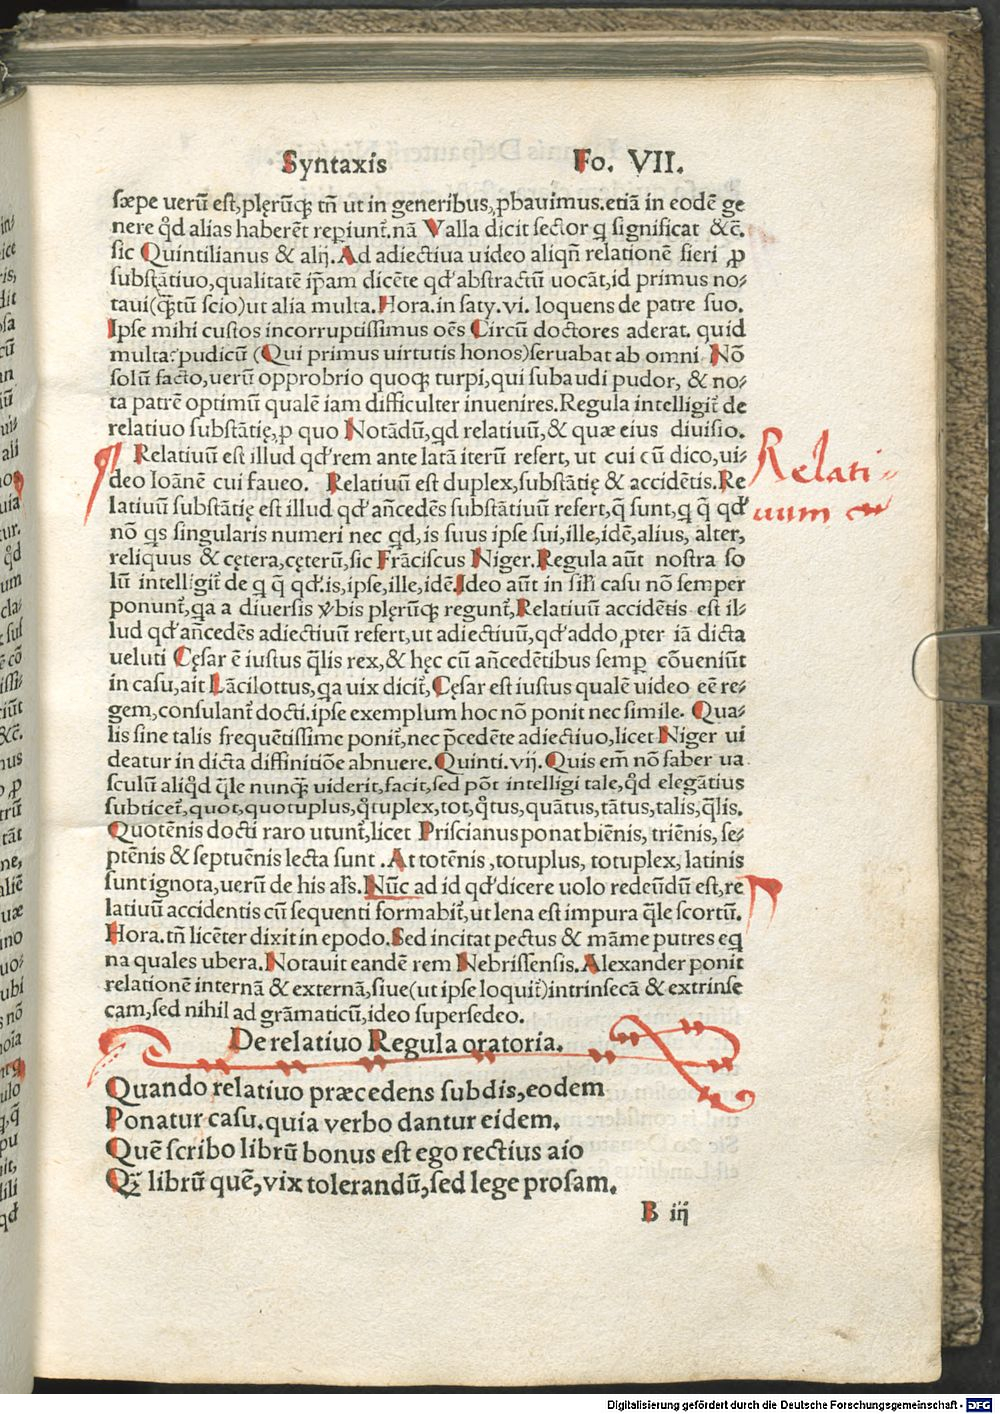 Syntaxis Fo. VII.
sæpe uerũ est, plęrũq; tñ ut in generibus, ꝓbauimus. etiã in eodẽ ge
nere qđ alias haberẽt reꝑiunt᷑. nã Valla dicit sector q̨ significat &c̃.
sic Quintilianus & alij. Ad adiectiua uideo aliqñ relationẽ fieri ꝓ
substãtiuo, qualitatẽ ip̃am dicẽte qđ abstractũ uocãt, id primus no⸗
taui (q̃tũ scio) ut alia multa. Hora. in saty. vi. loquens de patre suo.
Ipse mihi custos incorruptissimus oẽs Circũ doctores aderat. quid
multa: pudicũ (Qui primus uirtutis honos) seruabat ab omni Nõ
solũ facto, uerũ opprobrio quoq; turpi, qui subaudi pudor, & no⸗
ta patrẽ optimũ qualẽ iam difficulter inuenires. Regula intelligit᷑ de
relatiuo substãtię, ꝓ quo Notãdũ, qđ relatiuũ, & quæ eius diuisio.
Relatiuũ est illud qđ rem ante latã iterũ refert, ut cui cũ dico, ui⸗
deo Ioãnẽ cui faueo. Relatiuũ est duplex, substãtię & accidẽtis. Re
latiuũ substãtię est illud qđ añcedẽs substãtiuũ refert, q̃ sunt, q̨ q̃ qđ
nõ q̨s singularis numeri nec qđ, is suus ipse sui, ille, idẽ, alius, alter,
reliquus & cętera, cęterũ, sic Frãciscus Niger. Regula aũt nostra so
lũ intelligit᷑ de q̨ q̃ qđ. is, ipse, ille, idẽ. Ideo aũt in sił̃i casu nõ semper
ponunt᷑, q̨a a diuersis v̾bis plęrũq; regunt᷑, Relatiuũ accidẽtis est il⸗
lud qđ añcedẽs adiectiuũ refert, ut adiectiuũ, qđ addo ꝓpter iã dicta
ueluti Cęsar ẽ iustus q̃lis rex, & hęc cũ añcedẽtibus semꝑ cõueniũt
in casu, ait Lãcilottus, q̨a uix dicit᷑, Cęsar est iustus qualẽ uideo eẽ re⸗
gem, consulant᷑ docti. ipse exemplum hoc nõ ponit nec simile. Qua⸗
lis sine talis frequẽtissime ponit᷑, nec p̃cedẽte adiectiuo, licet Niger ui
deatur in dicta diffinitiõe abnuere. Quinti. vij. Quis em̃ nõ faber ua
sculũ aliqđ q̃le nunq̃ uiderit, facit, sed põt intelligi tale, qđ elegãtius
subticet᷑, quot, quotuplus, q̊tuplex, tot, q̃tus, quãtus, tãtus, talis, q̃lis.
Quotẽnis docti raro utunt᷑, licet Priscianus ponat biẽnis, triẽnis, se⸗
ptẽnis & septuẽnis lecta sunt. At totẽnis, totuplus, totuplex, latinis
sunt ignota, uerũ de his ał̃s. Nũc ad id qđ dicere uolo redeũdũ est, re
latiuũ accidentis cũ sequenti formabit᷑, ut lena est impura q̃le scortũ.
Hora. tñ licẽter dixit in epodo. Sed incitat pectus & mãme putres eq̨
na quales ubera. Notauit eandẽ rem Nebrissensis. Alexander ponit
relationẽ internã & externã, siue (ut ipse loquit᷑) intrinsecã & extrinse
cam, sed nihil ad grãmaticũ, ideo supersedeo.
De relatiuo Regula oratoria.
Quando relatiuo præcedens subdis, eodem
Ponatur casu. quia verbo dantur eidem.
Quẽ scribo librũ bonus est ego rectius aio
Qꝫ librũ quẽ, vix tolerandũ, sed lege prosam.
B iij
Relati⸗
uum
Digitalisierung gefördert durch die Deutsche Forschungsgemeinschaft - DFG